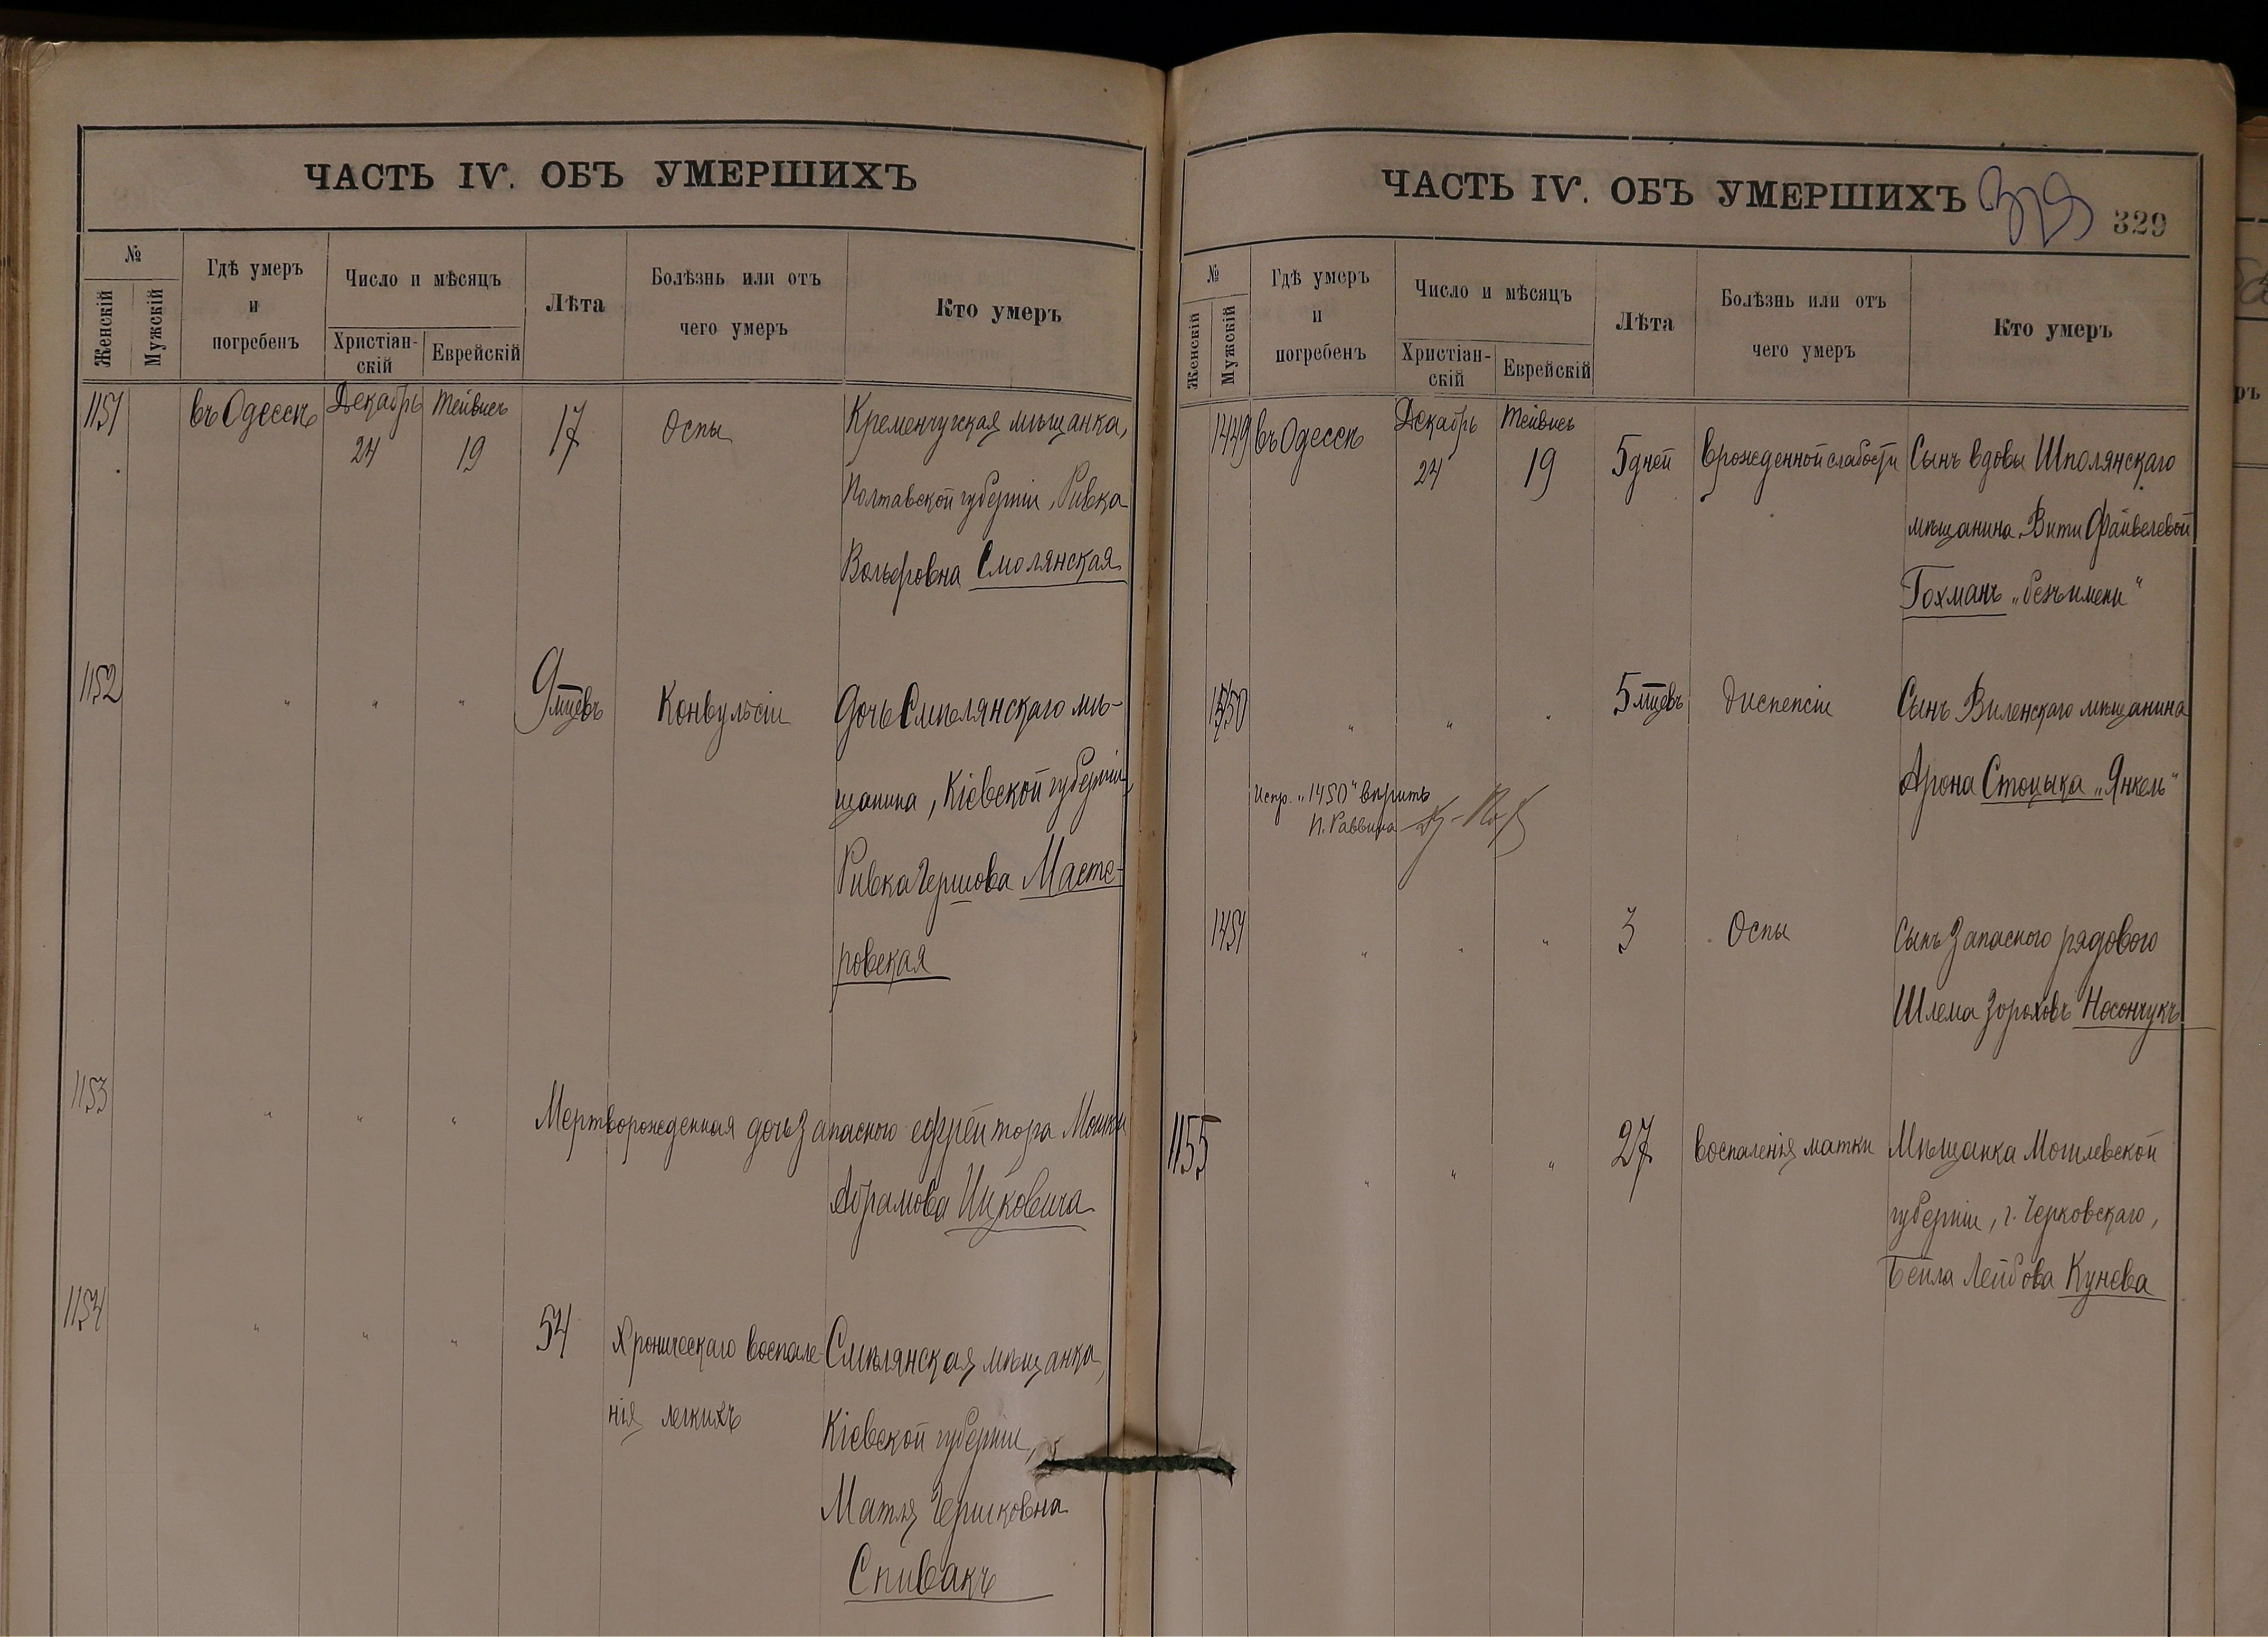 ЧАСТЬ IV. ОБЪ УМЕРШИХЪ
№
Женскій
Мужскій
Гдѣ умеръ
и
погребенъ
Число и мѣсяцъ
Христіан-
скій
Еврейскій
Лѣта
Болѣзнь или отъ
чего умеръ
Кто умеръ
1151 въ Одессѣ Декабрь Тейвисъ
24 19 17 Оспы Кременчугская мѣщанка,
Полтавской губерніи, Ривка
Вольфовна Смолянская
1152 " " " 9 мцевъ Конвульсіи Дочь Смѣлянскаго мѣ-
щанина, Кіевской губерніи,
Ривка Гершова Масте-
ровская
1153 " " " Мертворожденная дочь запасного ефрейтора Мошки
Абрамова Ицковича
1154 " " " 54 Хроническаго воспале- Смѣлянская мѣщанка,
нія легкихъ Кіевской губерніи,
Матля Гершковна
Спивакъ
ЧАСТЬ IV. ОБЪ УМЕРШИХЪ 329
329
№
Женскій
Мужскій
Гдѣ умеръ
и
погребенъ
Число и мѣсяцъ
Христіан-
скій
Еврейскій
Лѣта
Болѣзнь или отъ
чего умеръ
Кто умеръ
1449 въ Одессѣ Декабрь Тейвисъ
24 19 5 дней врожденной слабости Сынъ вдовы Шполянскаго
мѣщанина Вити Файвелевой
Гохманъ „безъ имени“
1450 " " " 5 мцевъ Диспепсіи Сынъ Виленскаго мѣщанина
Арона Стоцыка „Янкель“
Испр. „1450“ вѣрить
И. Раввина
1451 " " " 3 Оспы Сынъ запасного рядового
Шлема Зороховъ Носончукъ
1155 " " " 27 воспаленія матки Мѣщанка Могилевской
губерніи, г. Черковскаго,
Бейла Лейбова Кунева